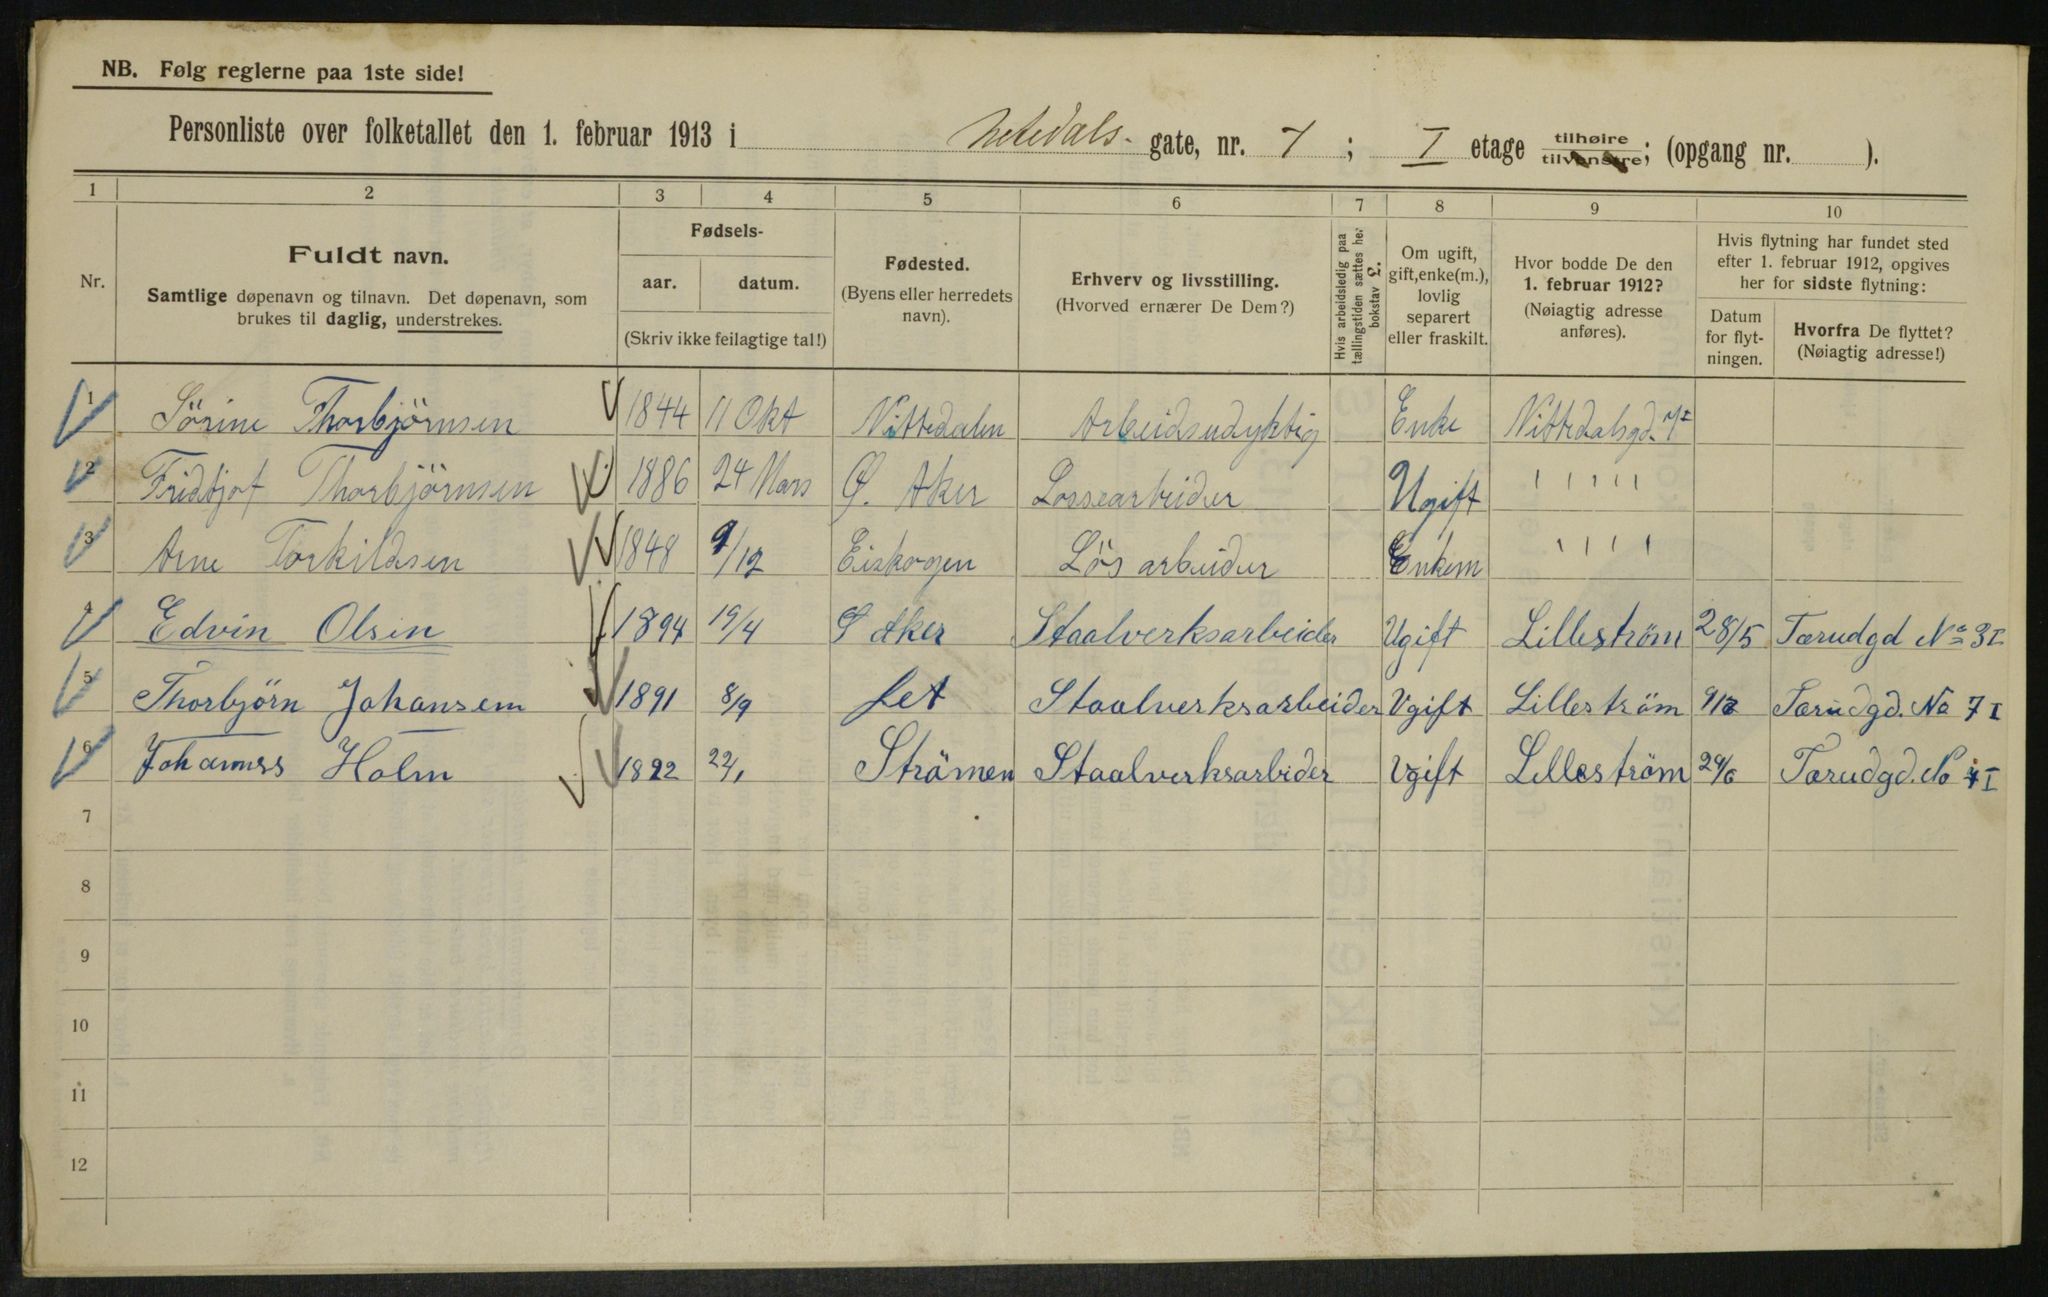 NB. Følg reglerne paa 1ste side!
Personliste over folketallet den 1. februar 1913 i Nitedals- gate, nr. 7; I etage tilhøire / tilvenstre; (opgang nr. ).
1 2 3 4 5 6 7 8 9 10
Nr.
Fuldt navn.
Samtlige døpenavn og tilnavn. Det døpenavn, som
brukes til daglig, understrekes.
Fødsels-
aar. datum.
(Skriv ikke feilagtige tal!)
Fødested.
(Byens eller herredets
navn).
Erhverv og livsstilling.
(Hvorved ernærer De Dem?)
Hvis arbeidsledig paa
tællingstiden sættes her
bokstav L.
Om ugift,
gift, enke(m.),
lovlig
separert
eller fraskilt.
Hvor bodde De den
1. februar 1912?
(Nøiagtig adresse
anføres).
Hvis flytning har fundet sted
efter 1. februar 1912, opgives
her for sidste flytning:
Datum
for flyt-
ningen.
Hvorfra De flyttet?
(Nøiagtig adresse!)
1 Sörine Thorbjörnsen 1844 11 Okt Nittedalen Arbeidsudyktig Enke Nittedalsgd. 7 I
2 Fridtjof Thorbjörnsen 1886 24 Mars Ø. Aker Lossearbeider Ugift " " " " "
3 Arne Torkildsen 1848 9/12 Eiskogen Lös arbeider Enkem " " " "
4 Edvin Olsen 1894 19/4 Ø Aker Staalverksarbeider Ugift Lilleström 28/5 Tærudgd No 3 I
5 Thorbjörn Johansem 1891 8/9 Fet Staalverksarbeider Ugift Lilleström Tærudgd. No 7 I
6 Johannes Holm 1892 22/1 Strömen Staalverksarbider Ugift Lilleström 24/6 Tærudgd. No I
7
8
9
10
11
12